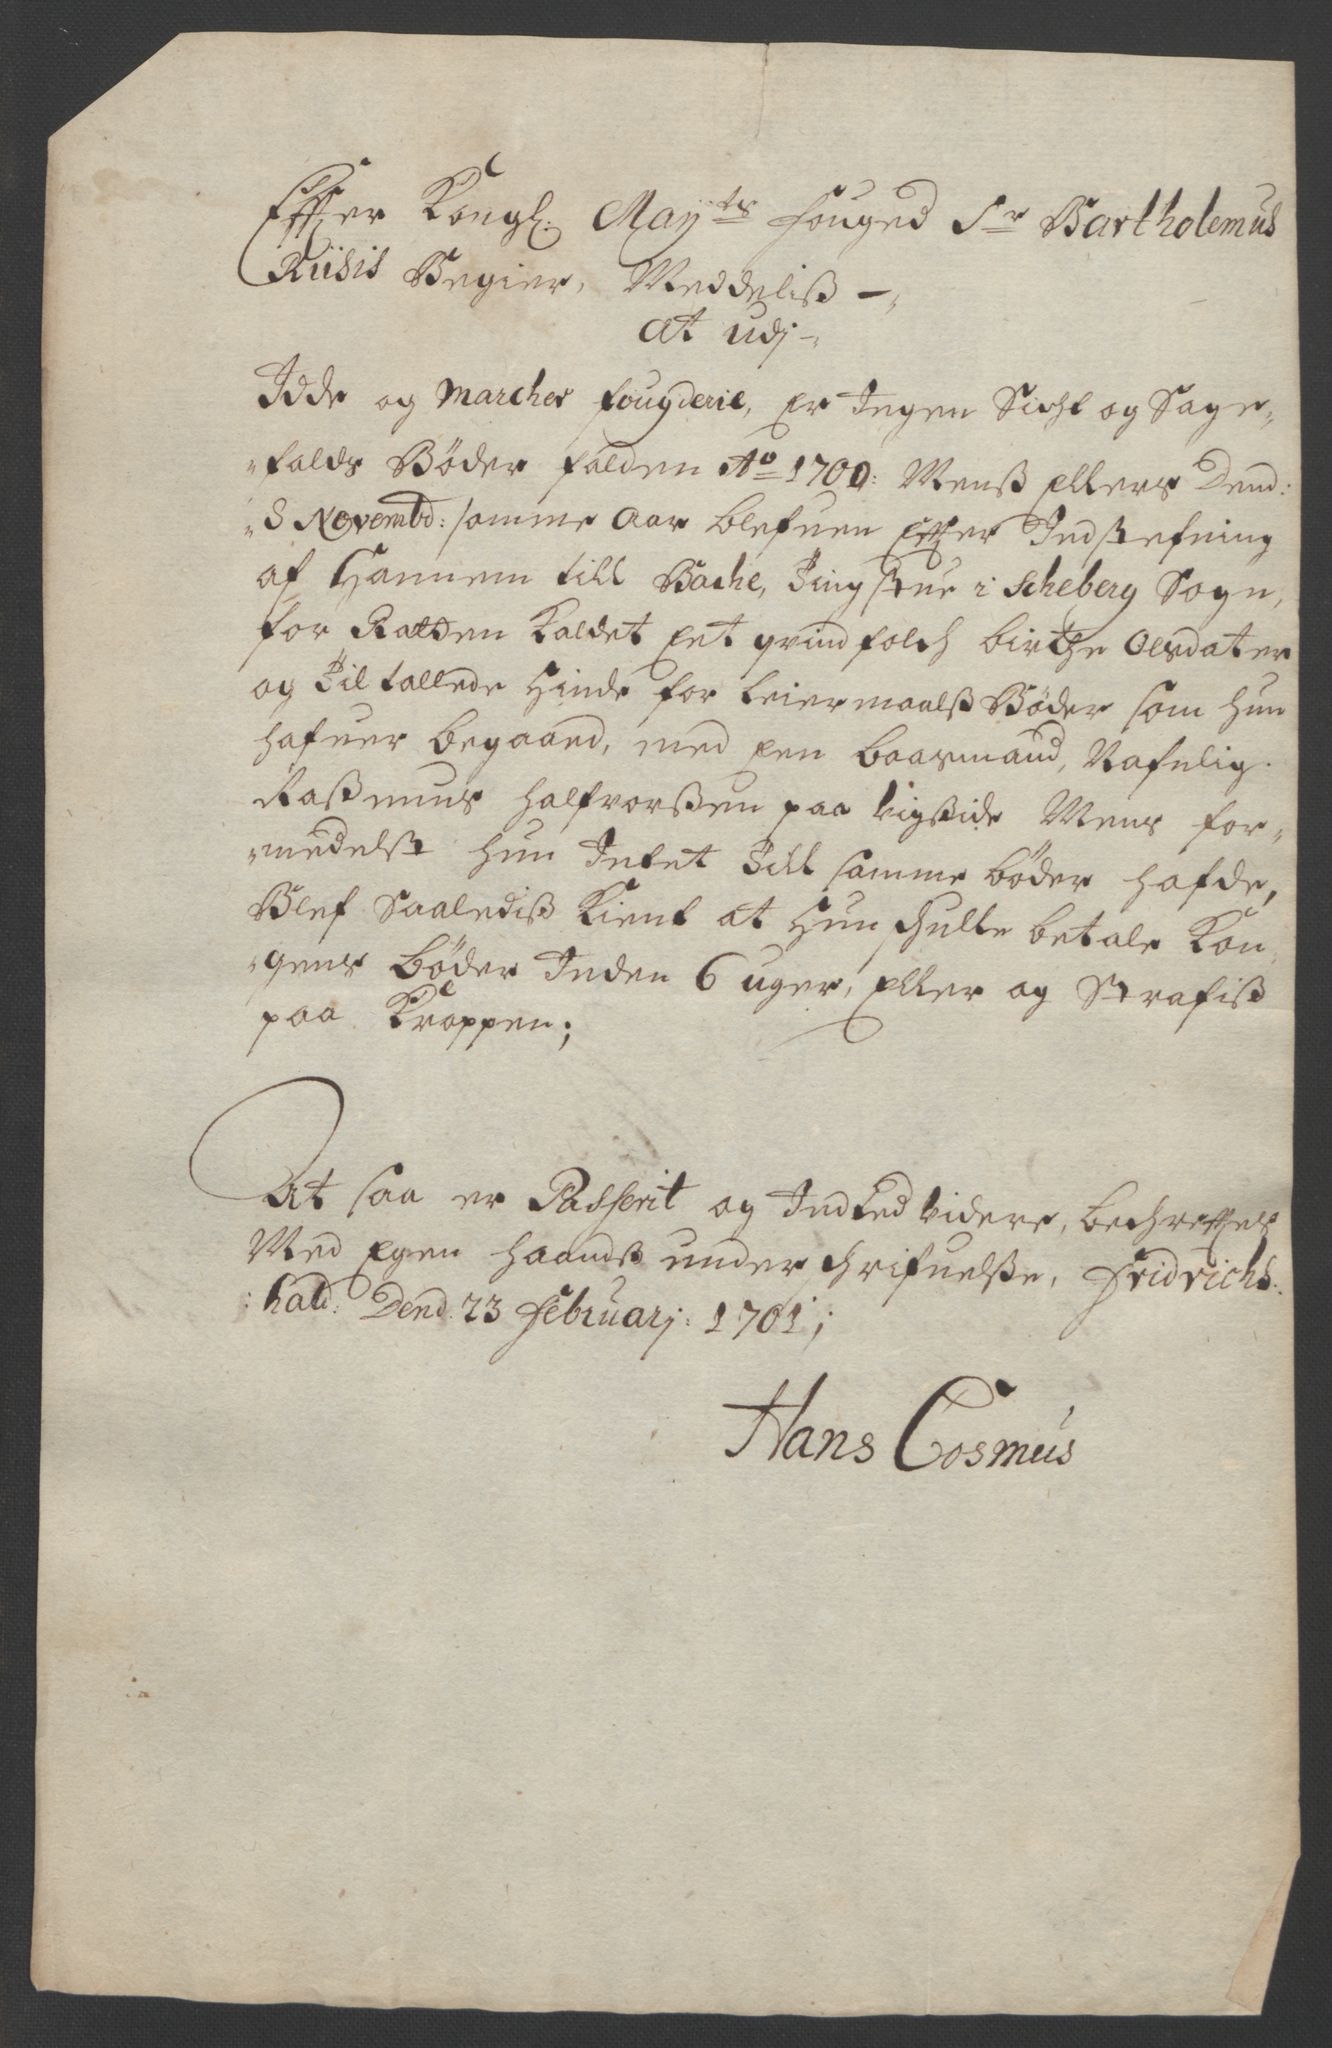 Effter Kongl: Mayts fouged Sr Bartholemus
Riisis Begier, Meddeliß –,
at udj –
Idde og Marcher fougderie, Er Ingen Sicht og Sage-
-falds Bøder falden Ao 1700: Menß Ellers Dend:
-8 Novembd: samme Aar blefuen Effter Indstefning
af Hannem till Bache, Tingstue i Scheberg Sogn,
for Retten Kaldet Eet qvindfolch birthe Olsdater
og Tiltallede Hinde for leiermaalß Bøder som hun
hafuer begaaed, med Een baasmand, Nafnlig
Raßmus Halfvorßen paa vigßide Mens for-
-medelst hun Intet Till samme bøder hafde,
Blef Saalediß Kient at Hun schulle betale Kon-
-gens Bøder Inden 6 uger, Eller og Strafiß
paa Kroppen;
At saa er Passerit og Indted videre, bechreffter
Med Egen haandß underschrifuelße, Fridrichs:
:hald: Dend 23 Februarj: 1701;
Hans Cosmus